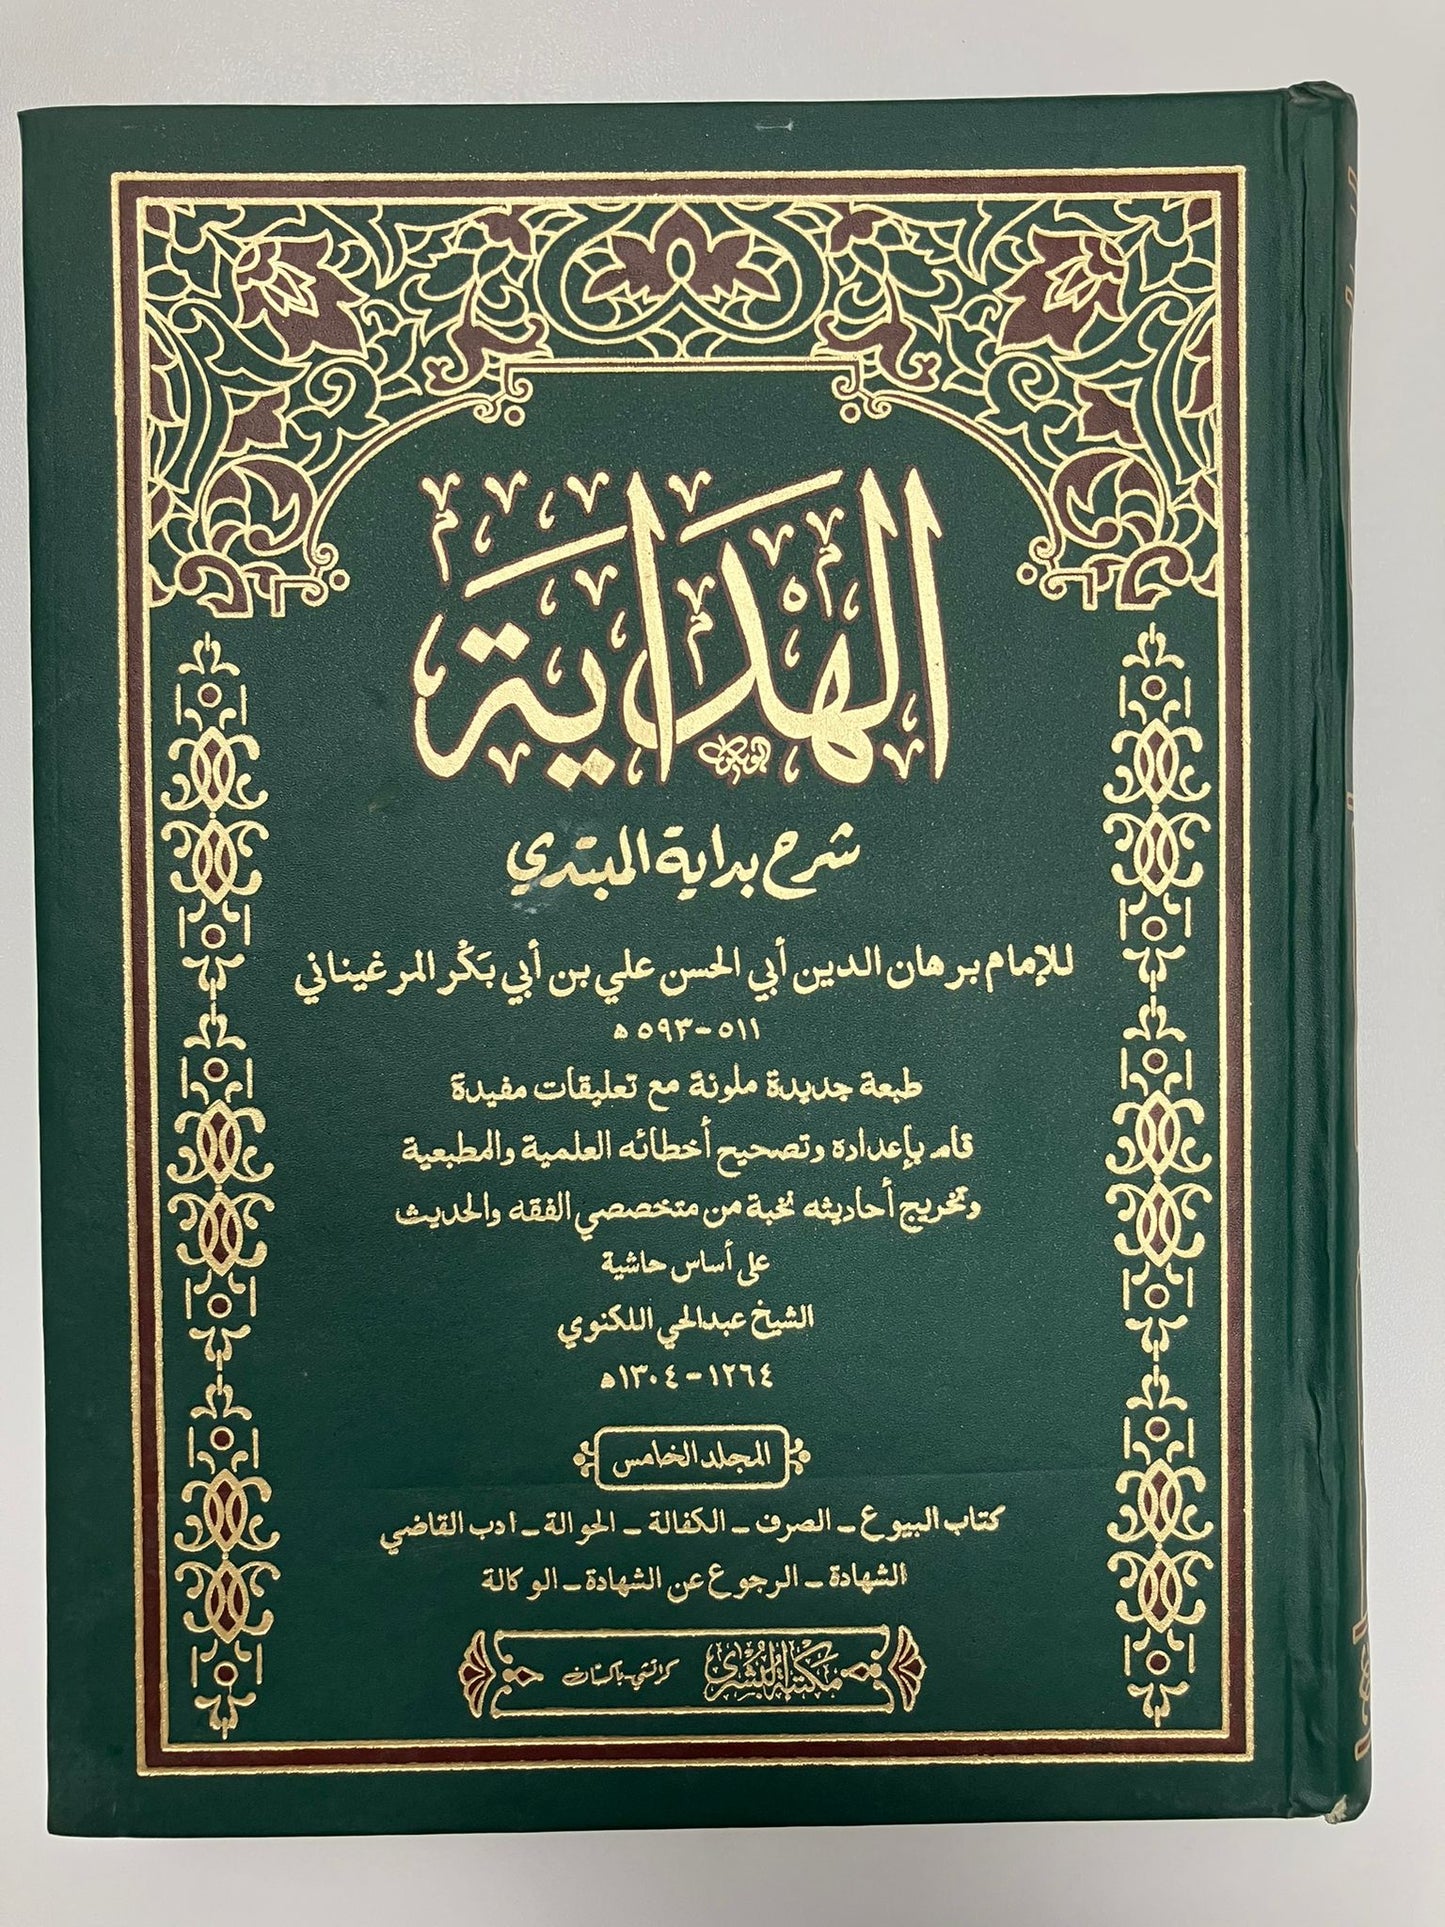 الهداية
شرح بداية المبتدي
للإمام برهان الدين أبي الحسن علي بن أبي بَكْر المرغيناني
٥١١-٥٩٣ ه
طبعة جديدة ملونة مع تعليقات مفيدة
قام بإعداده وتصحيح أخطائه العلمية والمطبعية
وتخريج أحاديثه نخبة من متخصصي الفقه والحديث
على أساس حاشية
الشيخ عبدالحي اللكنوي
١٢٦٤-١٣٠٤ه
المجلد الخامس
كتاب البيوع - الصرف - الكفالة - الحوالة - ادب القاضي
الشهادة - الرجوع عن الشهادة - الوكالة
مكتبة البشرى كراتشي باكستان